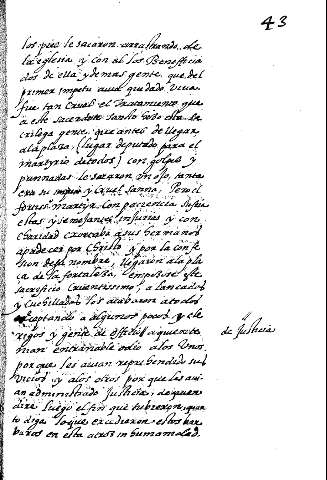 43
los pies le sacaron arrastrando, de
la eglesia y con el los Benefficia
dos de ella y demas gente, que del
primer impetu avia quedado viva
fue tan cruel el tratamiento que
a este sacerdote santo hiso esta sa
crilega gente, que antes de llegar
a la plaza, (lugar deputado para el
martyrio de todos) con golpes y
punnadas le sacaron un ojo, tanta
era su y cruel sanna, Pero el
fortiss.º martyr con paciencia sufria
estas y semejantes injurias y con
charidad exortaba a sus hermanos
a padecer por Christo y por la confe
sion de su nombre, llegaron a la pla
ça de la fortaleza, empesose este
sacrificio cruentissimo, a lançadas
y cuchilladas los acabaron a todos
eceptando a algunos pocos, y cle
rigos y gente de officios a quien te
nian entrañable odio a los unos,
por que les avian reprehendido sus
vicios, y a los otros por que les avi
an administrado Justicia, de quien
dire luego el fin que tubieron, quan
to diga lo que excedieron estos bar
baros en esta acros inhumanidad.
de Justicia